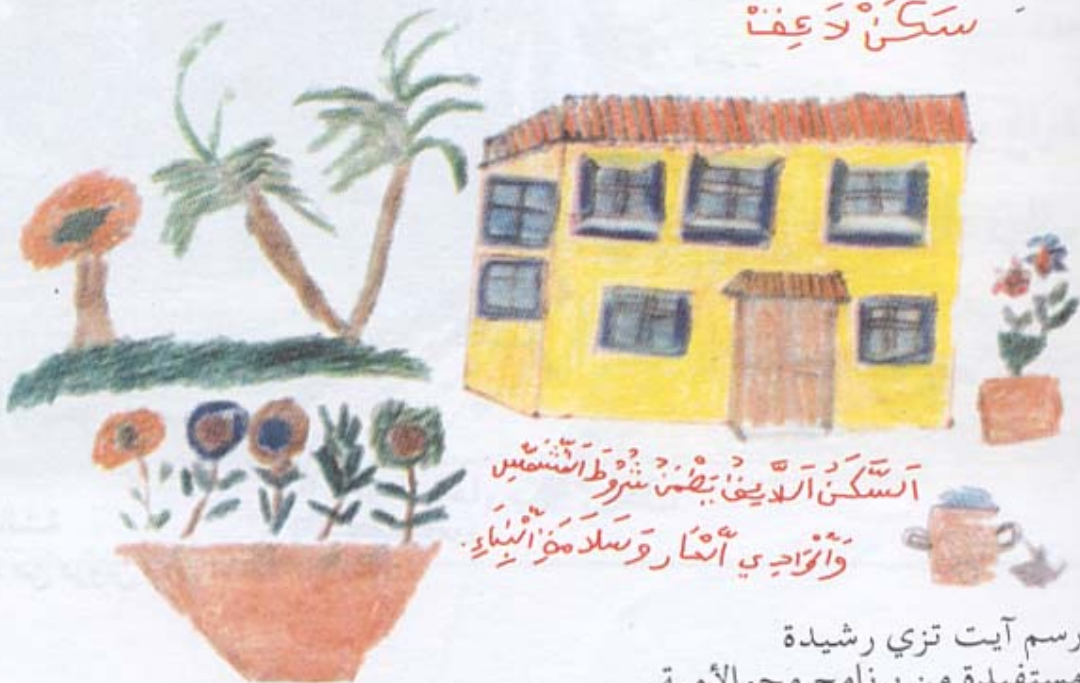 سَكَنْ لَا ئِقْ
اَلسَّكَنُ اَللَّا يِقُ يَضْمَنُ شُرُوطَ
وَالْوَادِي الْحَار وَسَلَامَةِ الْبِنَاءِ.
رسم آيت تزي رشيدة
مستفيدة من برنامج محو الأمية